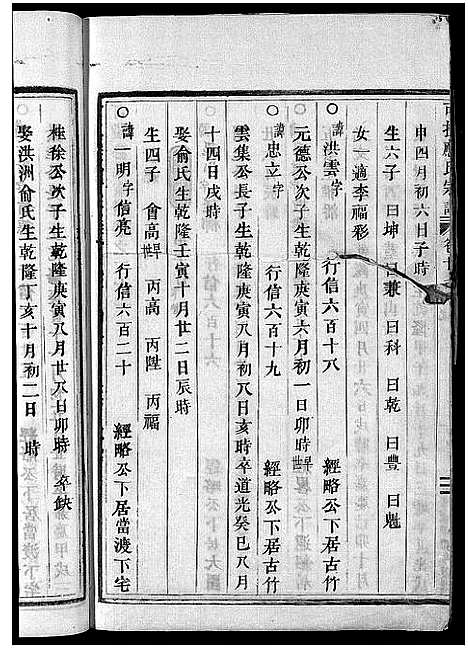 申四月初六日子時
生六子 曰坤 曰兼 曰科 曰乾 曰豐 曰魁
女一適李福彩
○諱洪雲字 行信六百十八 經略公下居古竹
元德公次子生乾隆庚寅六月初一日卯時
○諱忠立字 行信六百十九 經略公下居古竹
雲集公長子生乾隆庚寅八月亥時卒道光癸巳八月
十四日戌時
娶俞氏生乾隆壬寅十月廿二日辰時
生四子 會高 丙高 丙陞 丙福
○諱一明字信亮 行信六百二十 經略公下居當渡下宅
桂徐公次子生乾隆庚寅八月廿八日卯時 卒缺
娶洪洲俞氏生乾隆丁亥十月初二日 時